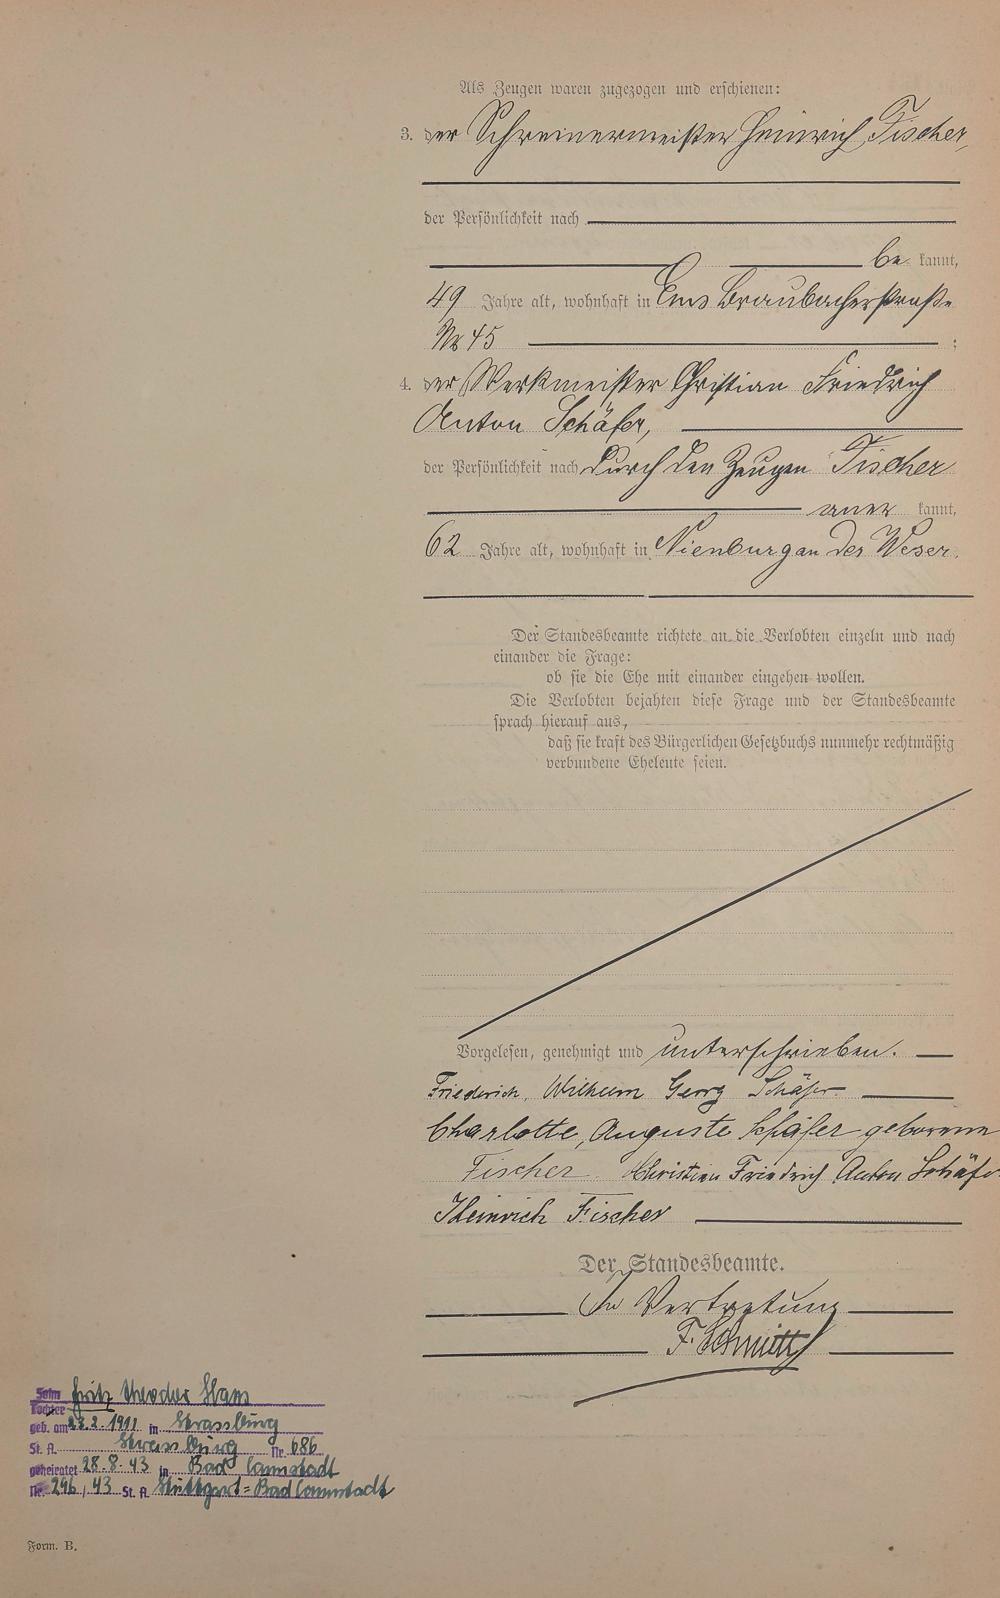 Als Zeugen waren zugezogen und erschienen:
3. der Schreinermeister Heinrich Fischer,
der Persönlichkeit nach
be kannt,
49 Jahre alt, wohnhaft in Ems Braubacherstraße
Nr 45 ;
4. der Werkmeister Christian Friedrich
Anton Schäfer,
der Persönlichkeit nach durch den Zeugen Fischer
aner kannt,
62 Jahre alt, wohnhaft in Nienburg an der Weser.
Der Standesbeamte richtete an die Verlobten einzeln und nach
einander die Frage:
ob sie die Ehe mit einander eingehen wollen.
Die Verlobten bejahten diese Frage und der Standesbeamte
sprach hierauf aus,
daß sie kraft des Bürgerlichen Gesetzbuchs nunmehr rechtmäßig
verbundene Eheleute seien.
Vorgelesen, genehmigt und unterschrieben.
Friederich Wilhelm Georg Schäfer
Charlotte, Auguste Schäfer geborene
Fischer. Christian Friedrich Anton Schäfer
Heinrich Fischer
Der Standesbeamte.
In Vertretung
F. Schmitt
Sohn Fritz Theodor Hans
Tochter
geb. am 23.2.1911 in Strassburg
St. A. Strassburg Nr. 686
geheiratet 28.8.43 in Bad Cannstadt
Nr. 296/43 St. A. Stuttgart=Bad Cannstadt
Form. B.